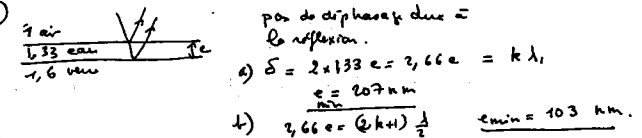 1 air
1,33 eau
1,6 verre
e
pas de déphasage dux à
la réflexion.
a) δ = 2×1,33 e = 2,66 e = k λ₁
e min = 207 nm
b) 2,66 e = (2k+1) λ/2 emin = 103 nm.